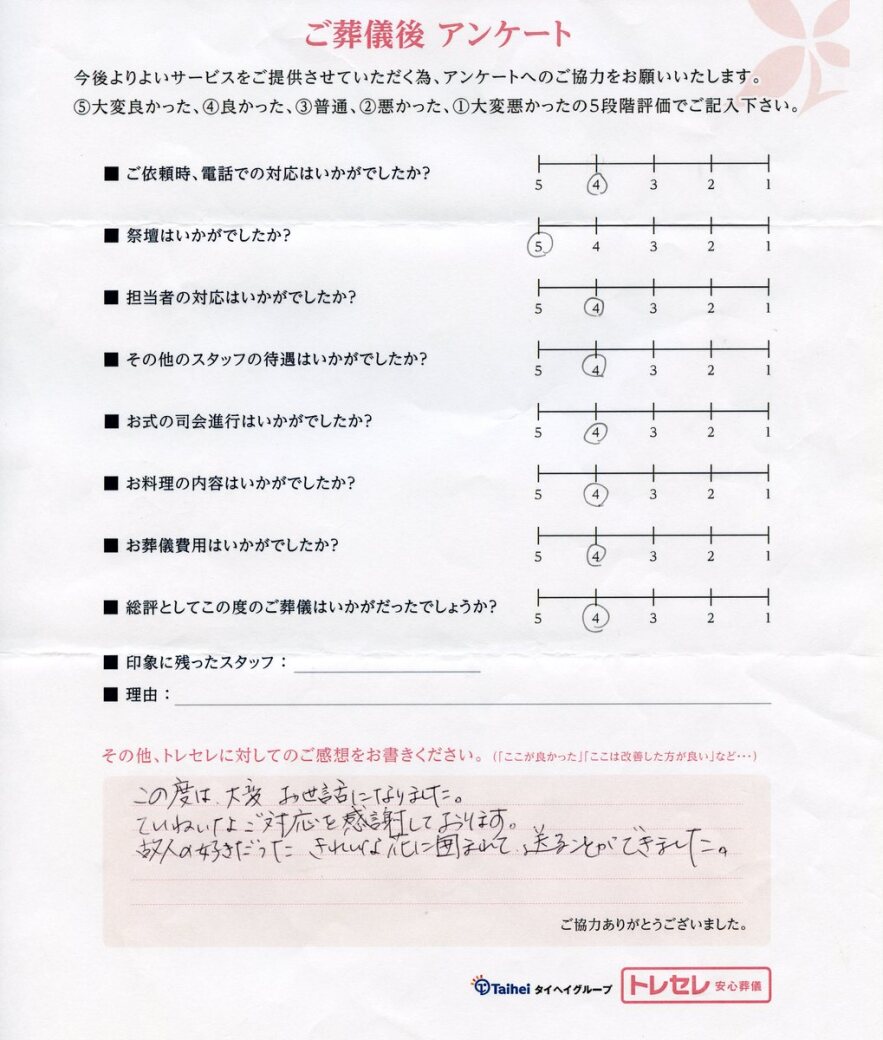 ご葬儀後 アンケート
今後よりよいサービスをご提供させていただく為、アンケートへのご協力をお願いいたします。
⑤大変良かった、④良かった、③普通、②悪かった、①大変悪かったの5段階評価でご記入下さい。
■ ご依頼時、電話での対応はいかがでしたか?
5 4 3 2 1
■ 祭壇はいかがでしたか?
5 4 3 2 1
■ 担当者の対応はいかがでしたか?
5 4 3 2 1
■ その他のスタッフの待遇はいかがでしたか?
5 4 3 2 1
■ お式の司会進行はいかがでしたか?
5 4 3 2 1
■ お料理の内容はいかがでしたか?
5 4 3 2 1
■ お葬儀費用はいかがでしたか?
5 4 3 2 1
■ 総評としてこの度のご葬儀はいかがだったでしょうか?
5 4 3 2 1
■ 印象に残ったスタッフ：
■ 理由：
その他、トレセレに対してのご感想をお書きください。(「ここが良かった」「ここは改善した方が良い」など・・・)
この度は、大変 お世話になりました。
ていねいなご対応を感謝しております。
故人の好きだった きれいな花に囲まれて、送ることができました。
ご協力ありがとうございました。
Taihei タイヘイグループ トレセレ 安心葬儀